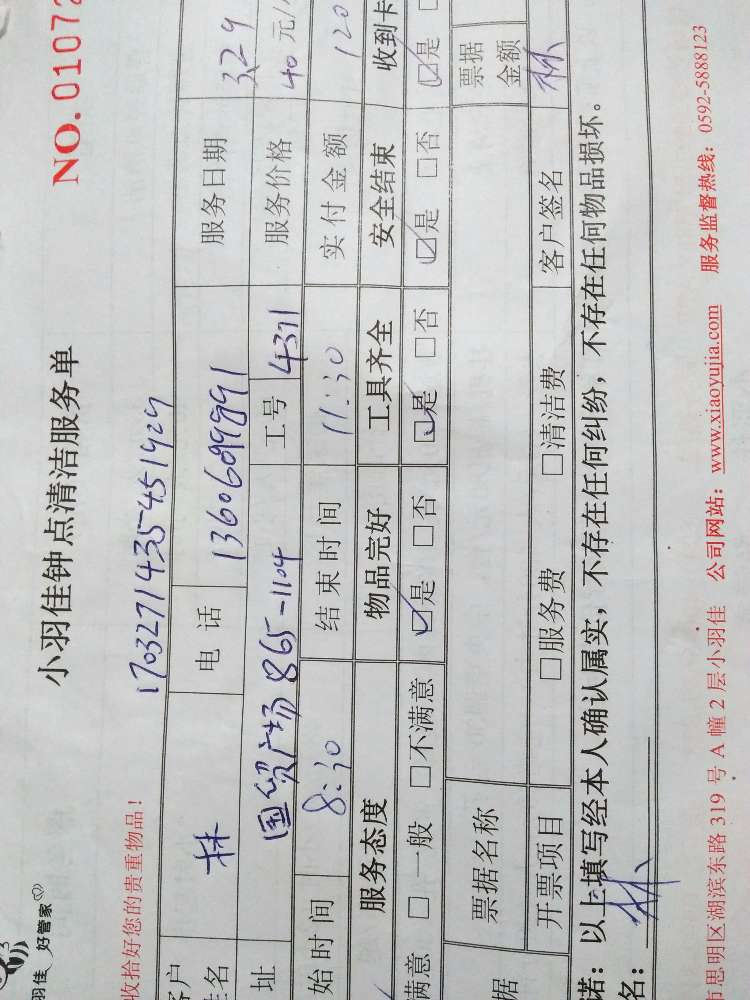 羽佳 好管家
小羽佳钟点清洁服务单
NO. 01072
收拾好您的贵重物品！
1703271435451929
客户姓名 林 电话 13606099891 服务日期 3.29
址 国贸广场865-1104 工号 4371 服务价格 40元/
始时间 8:30 结束时间 11:30 实付金额 120
服务态度 物品完好 工具齐全 安全结束 收到卡
满意 □一般 □不满意 ☑是 □否 ☑是 □否 ☑是 □否 ☑是
据 票据名称 票据金额
开票项目 □服务费 □清洁费 客户签名 林
诺：以上填写经本人确认属实，不存在任何纠纷，不存在任何物品损坏。
名：林
市思明区湖滨东路 319 号 A 幢 2 层小羽佳 公司网站：www.xiaoyujia.com 服务监督热线：0592-5888123